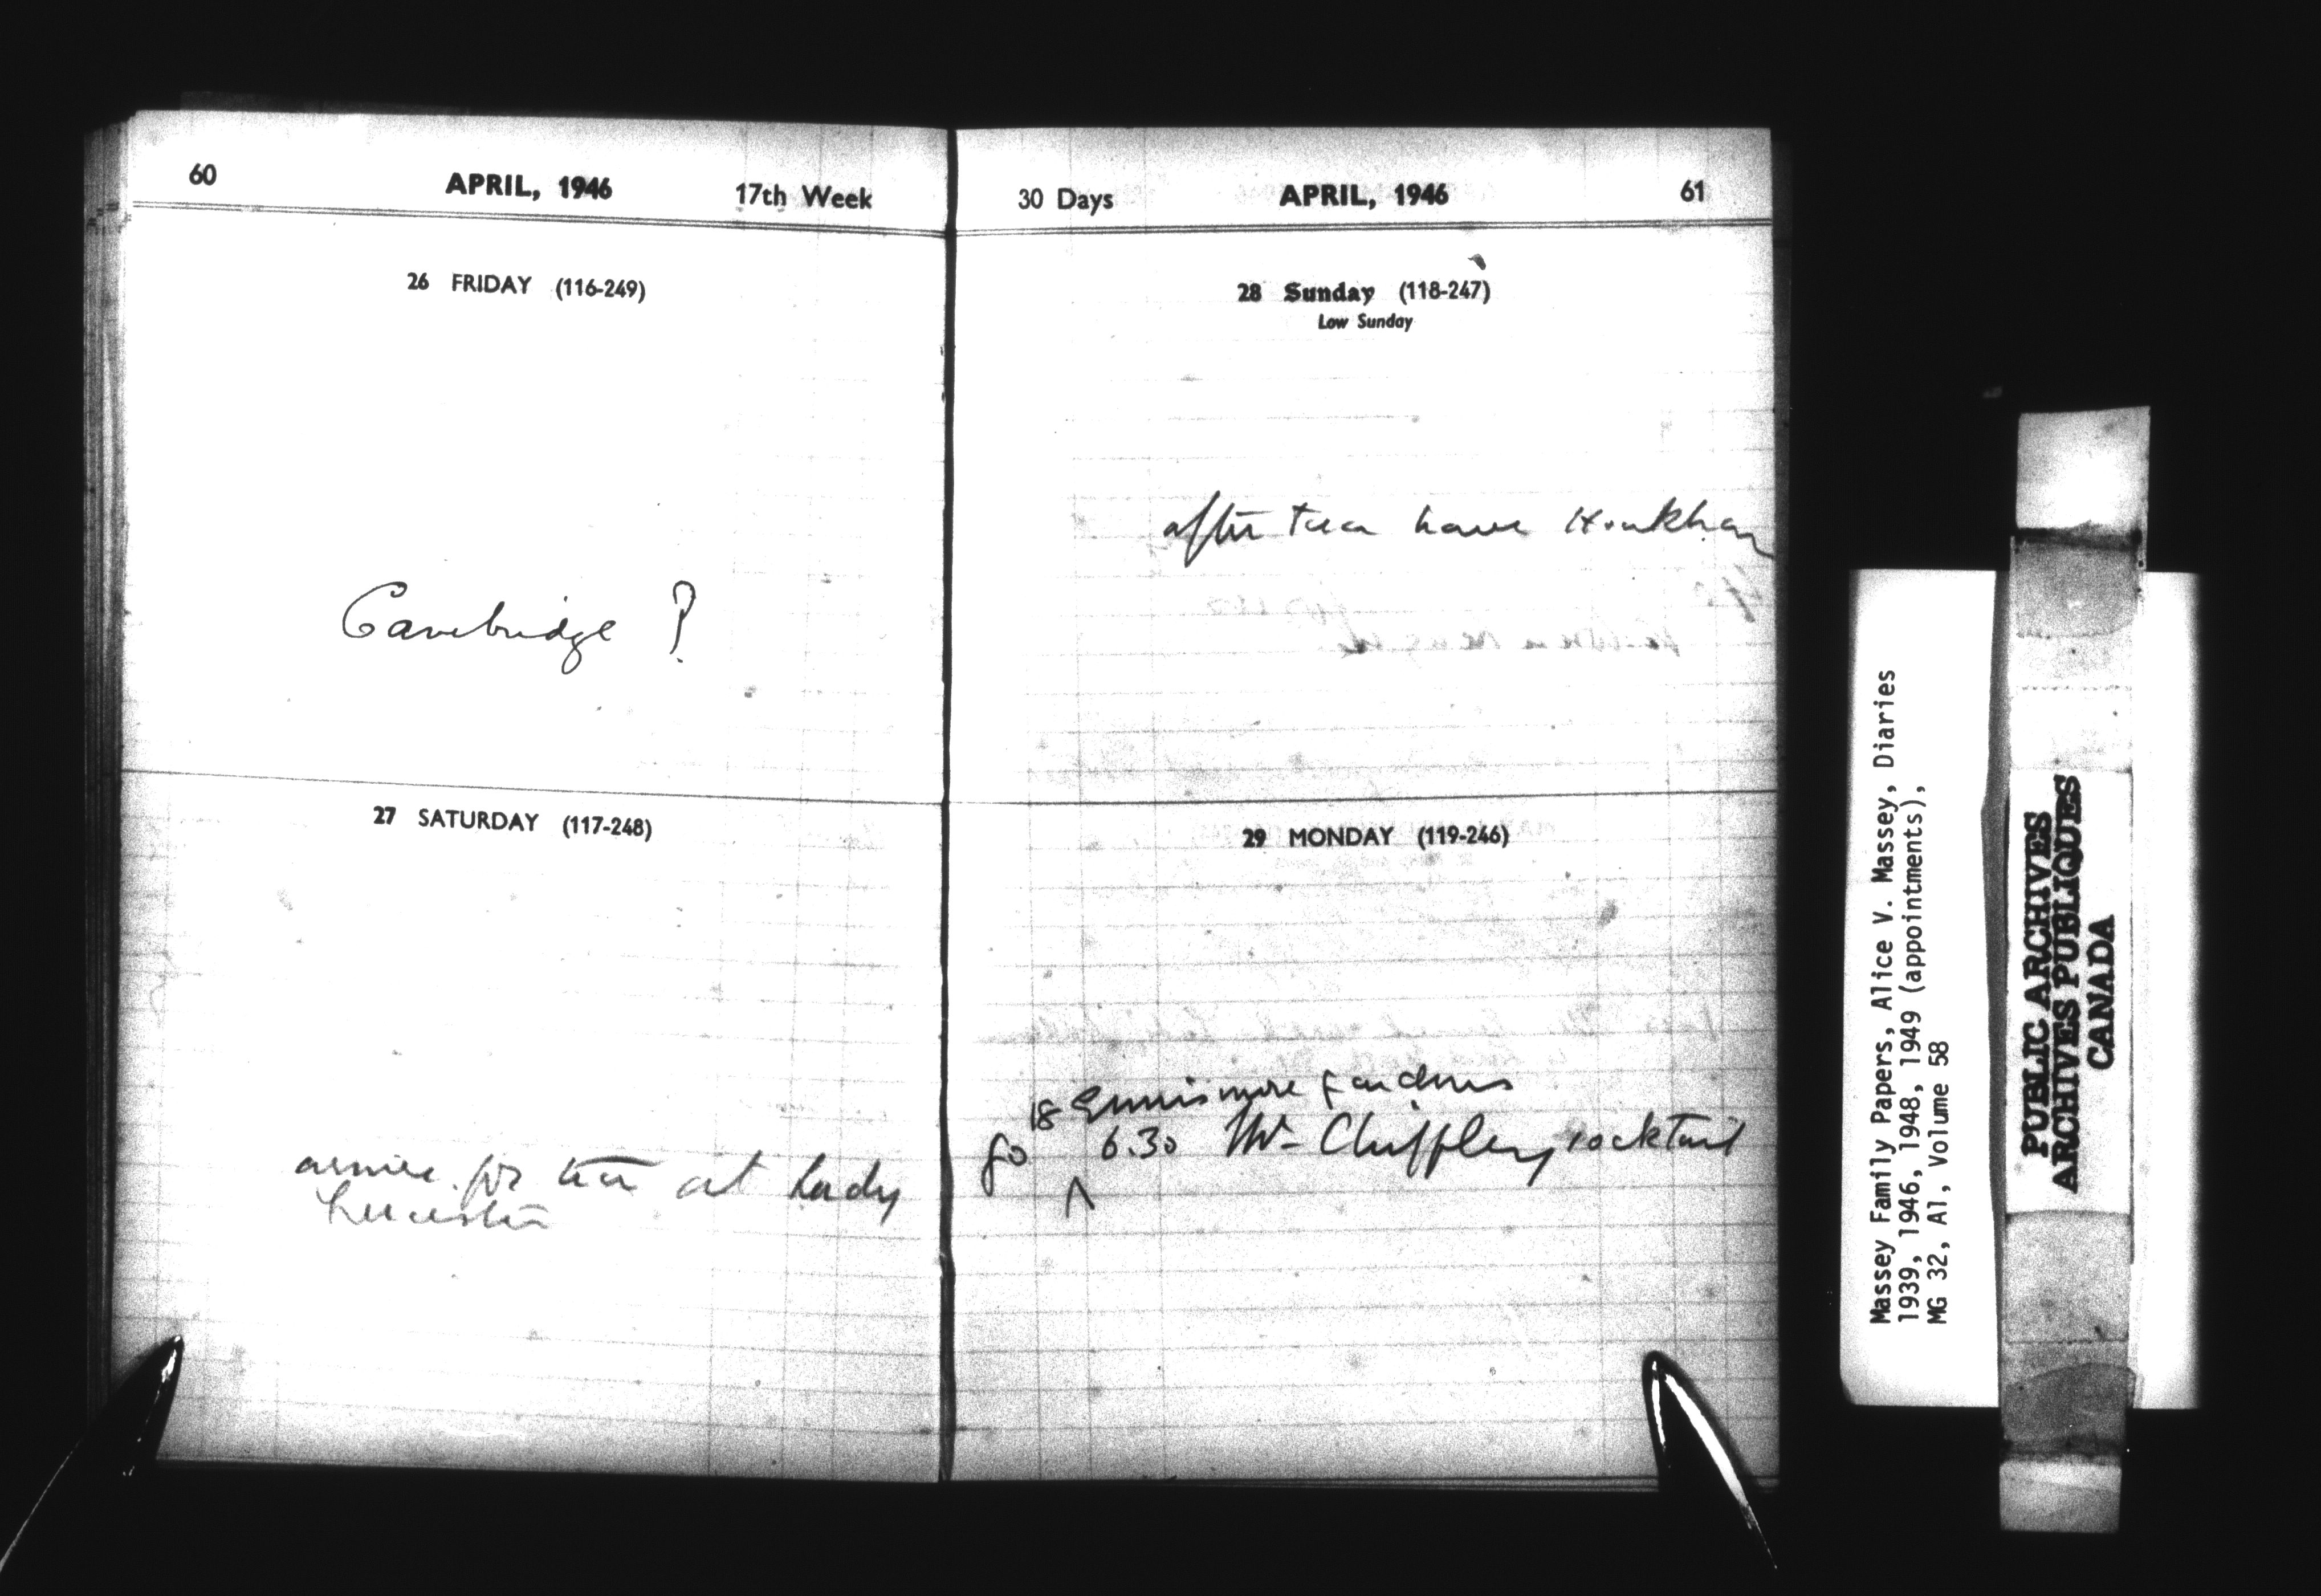 60 APRIL, 1946 17th Week
26 FRIDAY (116-249)
Cambridge ?
27 SATURDAY (117-248)
arrive for tea at Lady
Leicester
30 Days APRIL, 1946 61
28 Sunday (118-247)
Low Sunday
after tea leave Holkham
29 MONDAY (119-246)
18 Ennismore Gardens
go 6.30 Mr Chiffley cocktail
^
Massey Family Papers, Alice V. Massey, Diaries
1939, 1946, 1948, 1949 (appointments),
MG 32, A1, Volume 58
PUBLIC ARCHIVES
ARCHIVES PUBLIQUES
CANADA